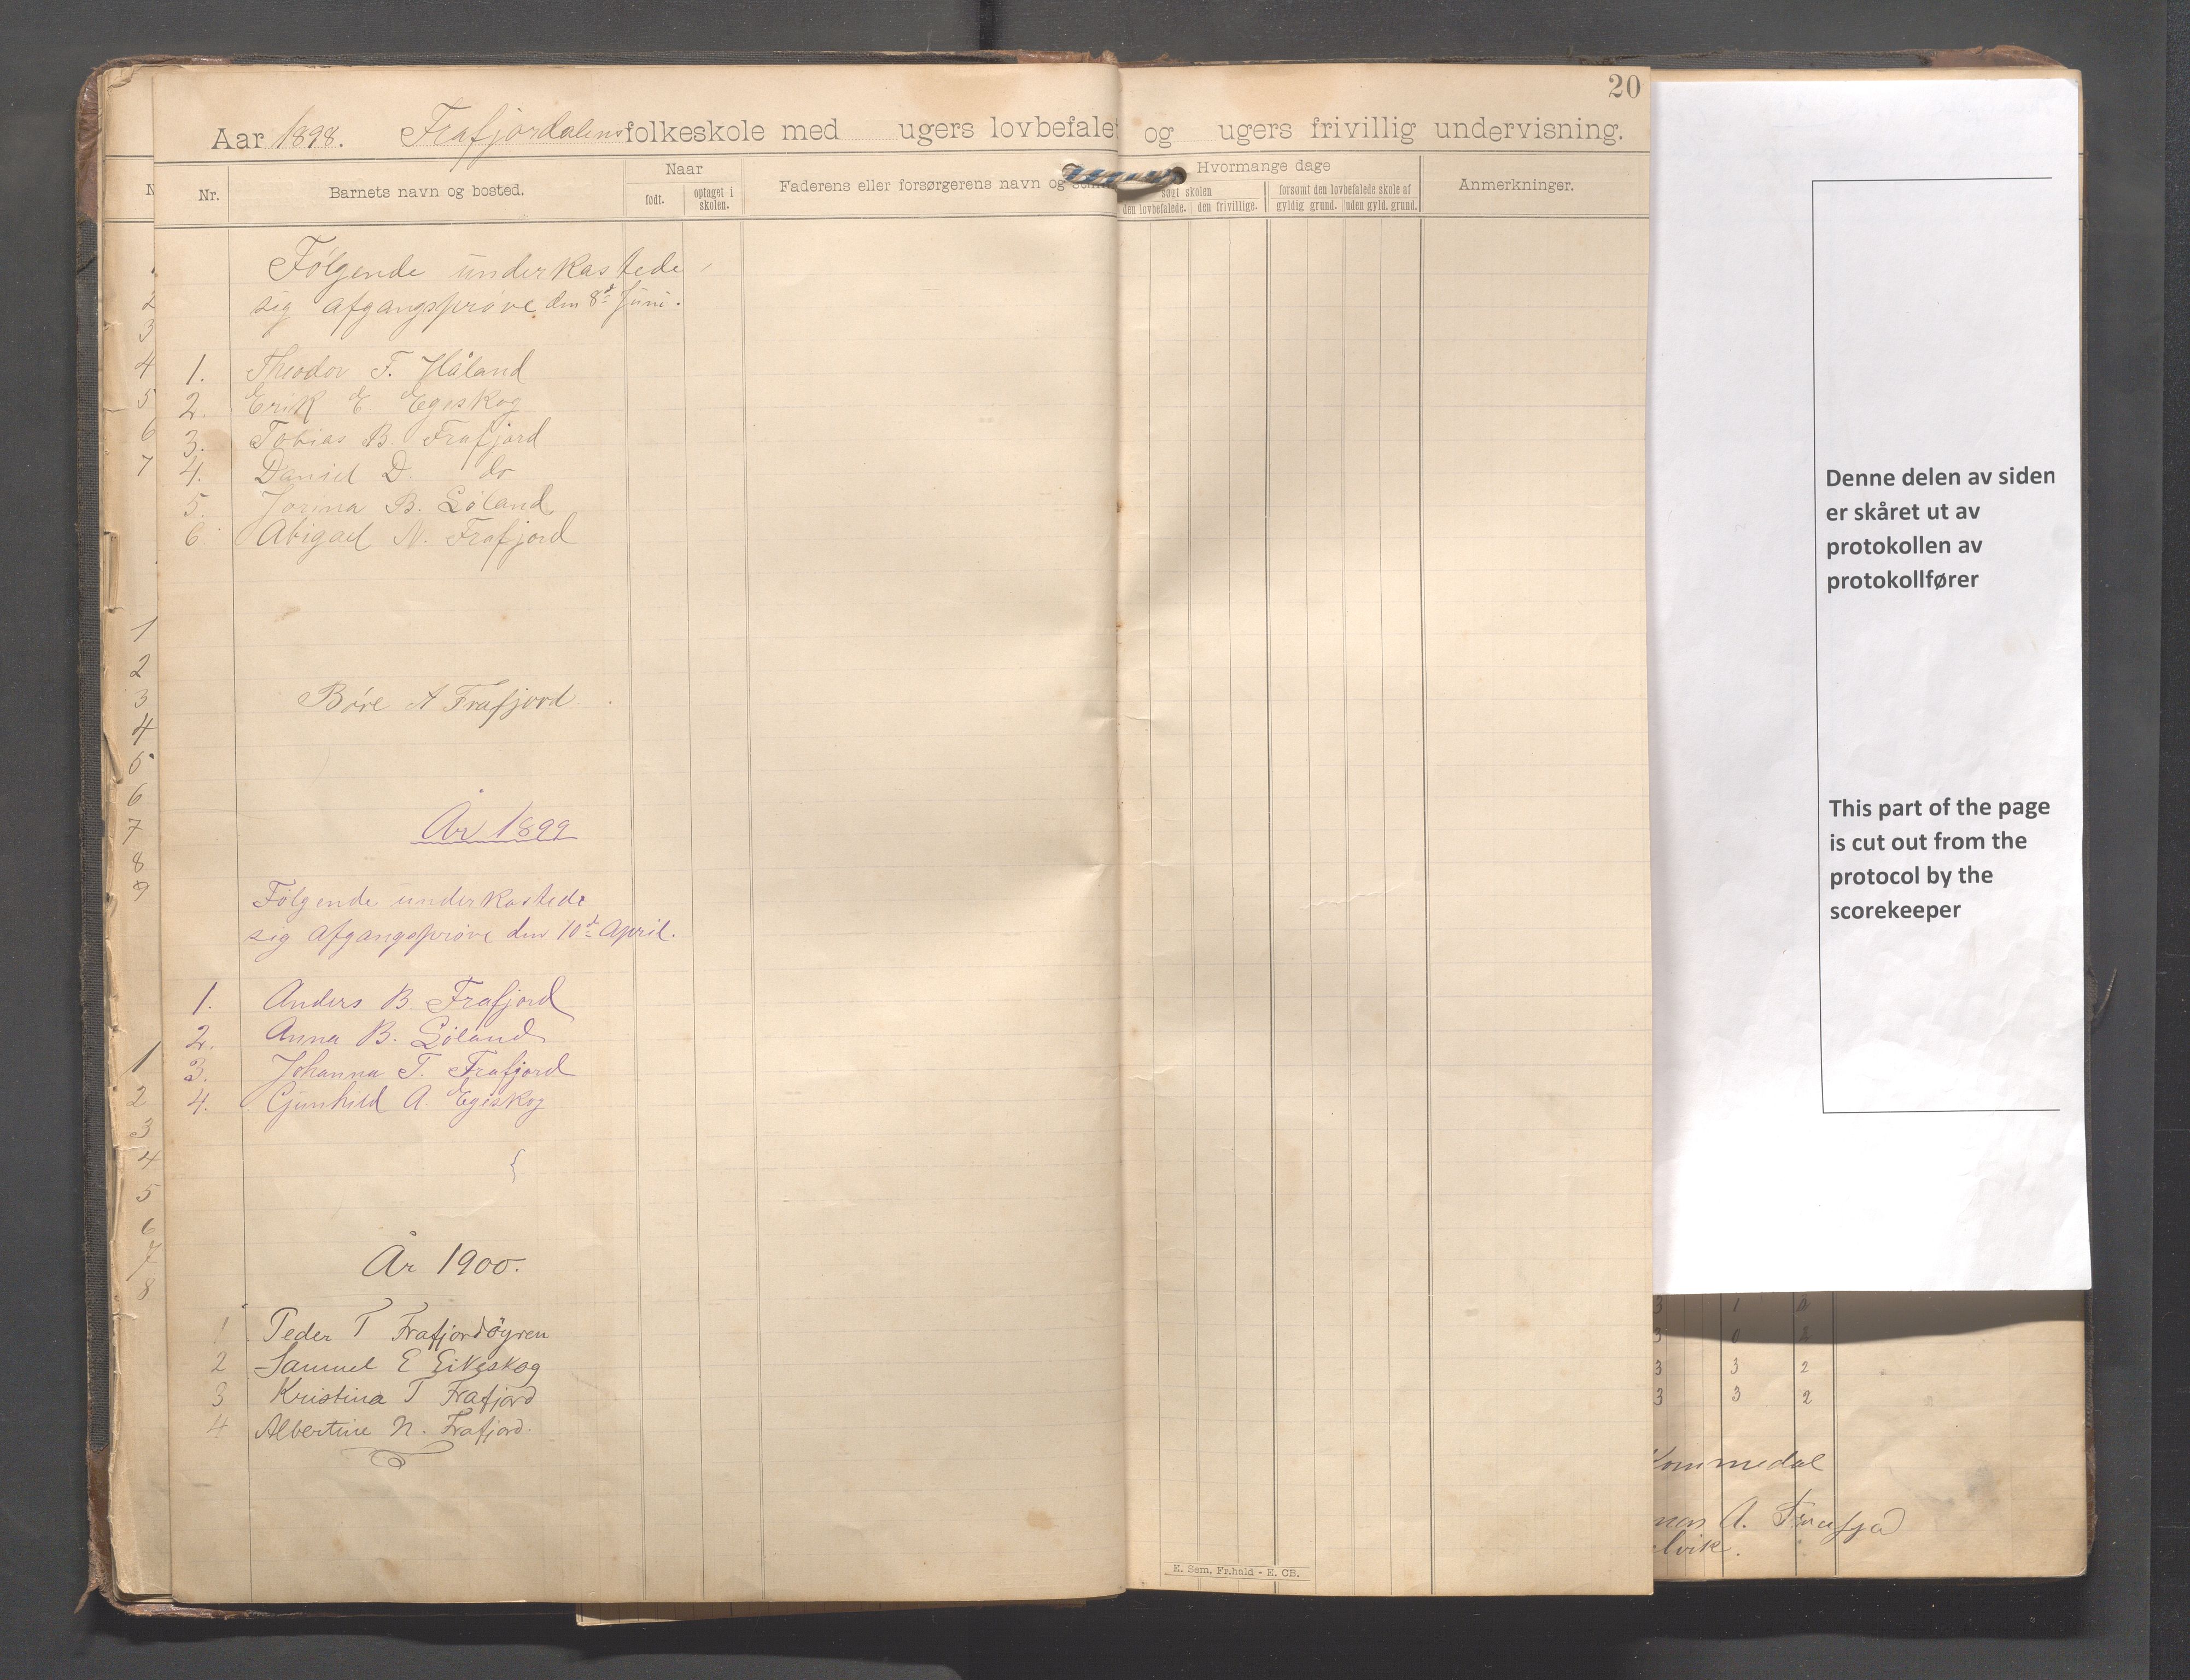 20
Aar 1898. Frafjordalens folkeskole med ugers lovbefalet og ugers frivillig undervisning.
Nr. Barnets navn og bosted. Naar født. optaget i skolen. Faderens eller forsørgerens navn og Hvormange dage søgt skolen den lovbefalede. den frivillige. forsømt den lovbefalede skole af gyldig grund. uden gyld. grund. Anmerkninger.
Følgende underkastede
sig afgangsprøve den 8d Juni.
1. Theodor T. Håland
2. Erik E. Egeskog
3. Tobias B. Frafjord
4. Daniel D. do
5. Jorina B. Løland
6. Abigael N. Frafjord
Børe A Frafjord.
År 1899
Følgende underkastede
sig afgangsprøve den 10d April.
1. Anders B. Frafjord
2. Anna B. Løland
3. Johanna T. Frafjord
4. Gunhild A. Egeskog
År 1900.
1 Peder T Frafjordøyren
2 Samuel E Eikeskog
3 Kristina T Frafjord
4 Albertine N. Frafjord.
E. Sem, Fr.hald - E. CB.
2
3
4
5
6
7
1
2
3
4
5
6
7
8
9
1
2
3
4
5
6
7
8
Denne delen av siden
er skåret ut av
protokollen av
protokollfører
This part of the page
is cut out from the
protocol by the
scorekeeper
3 1 2
3 0 2
3 3 2
3 3 2
ommedal
A. Frafjord
lvik.